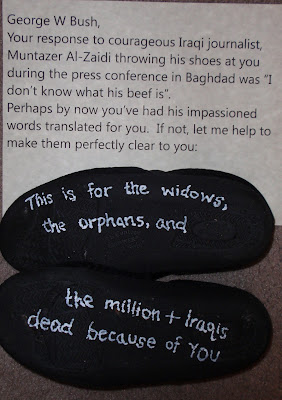 George W Bush,
Your response to courageous Iraqi journalist,
Muntazer Al-Zaidi throwing his shoes at you
during the press conference in Baghdad was "I
don't know what his beef is".
Perhaps by now you've had his impassioned
words translated for you.  If not, let me help to
make them perfectly clear to you:
This is for the widows,
the orphans, and
the million + Iraqis
dead because of YOU